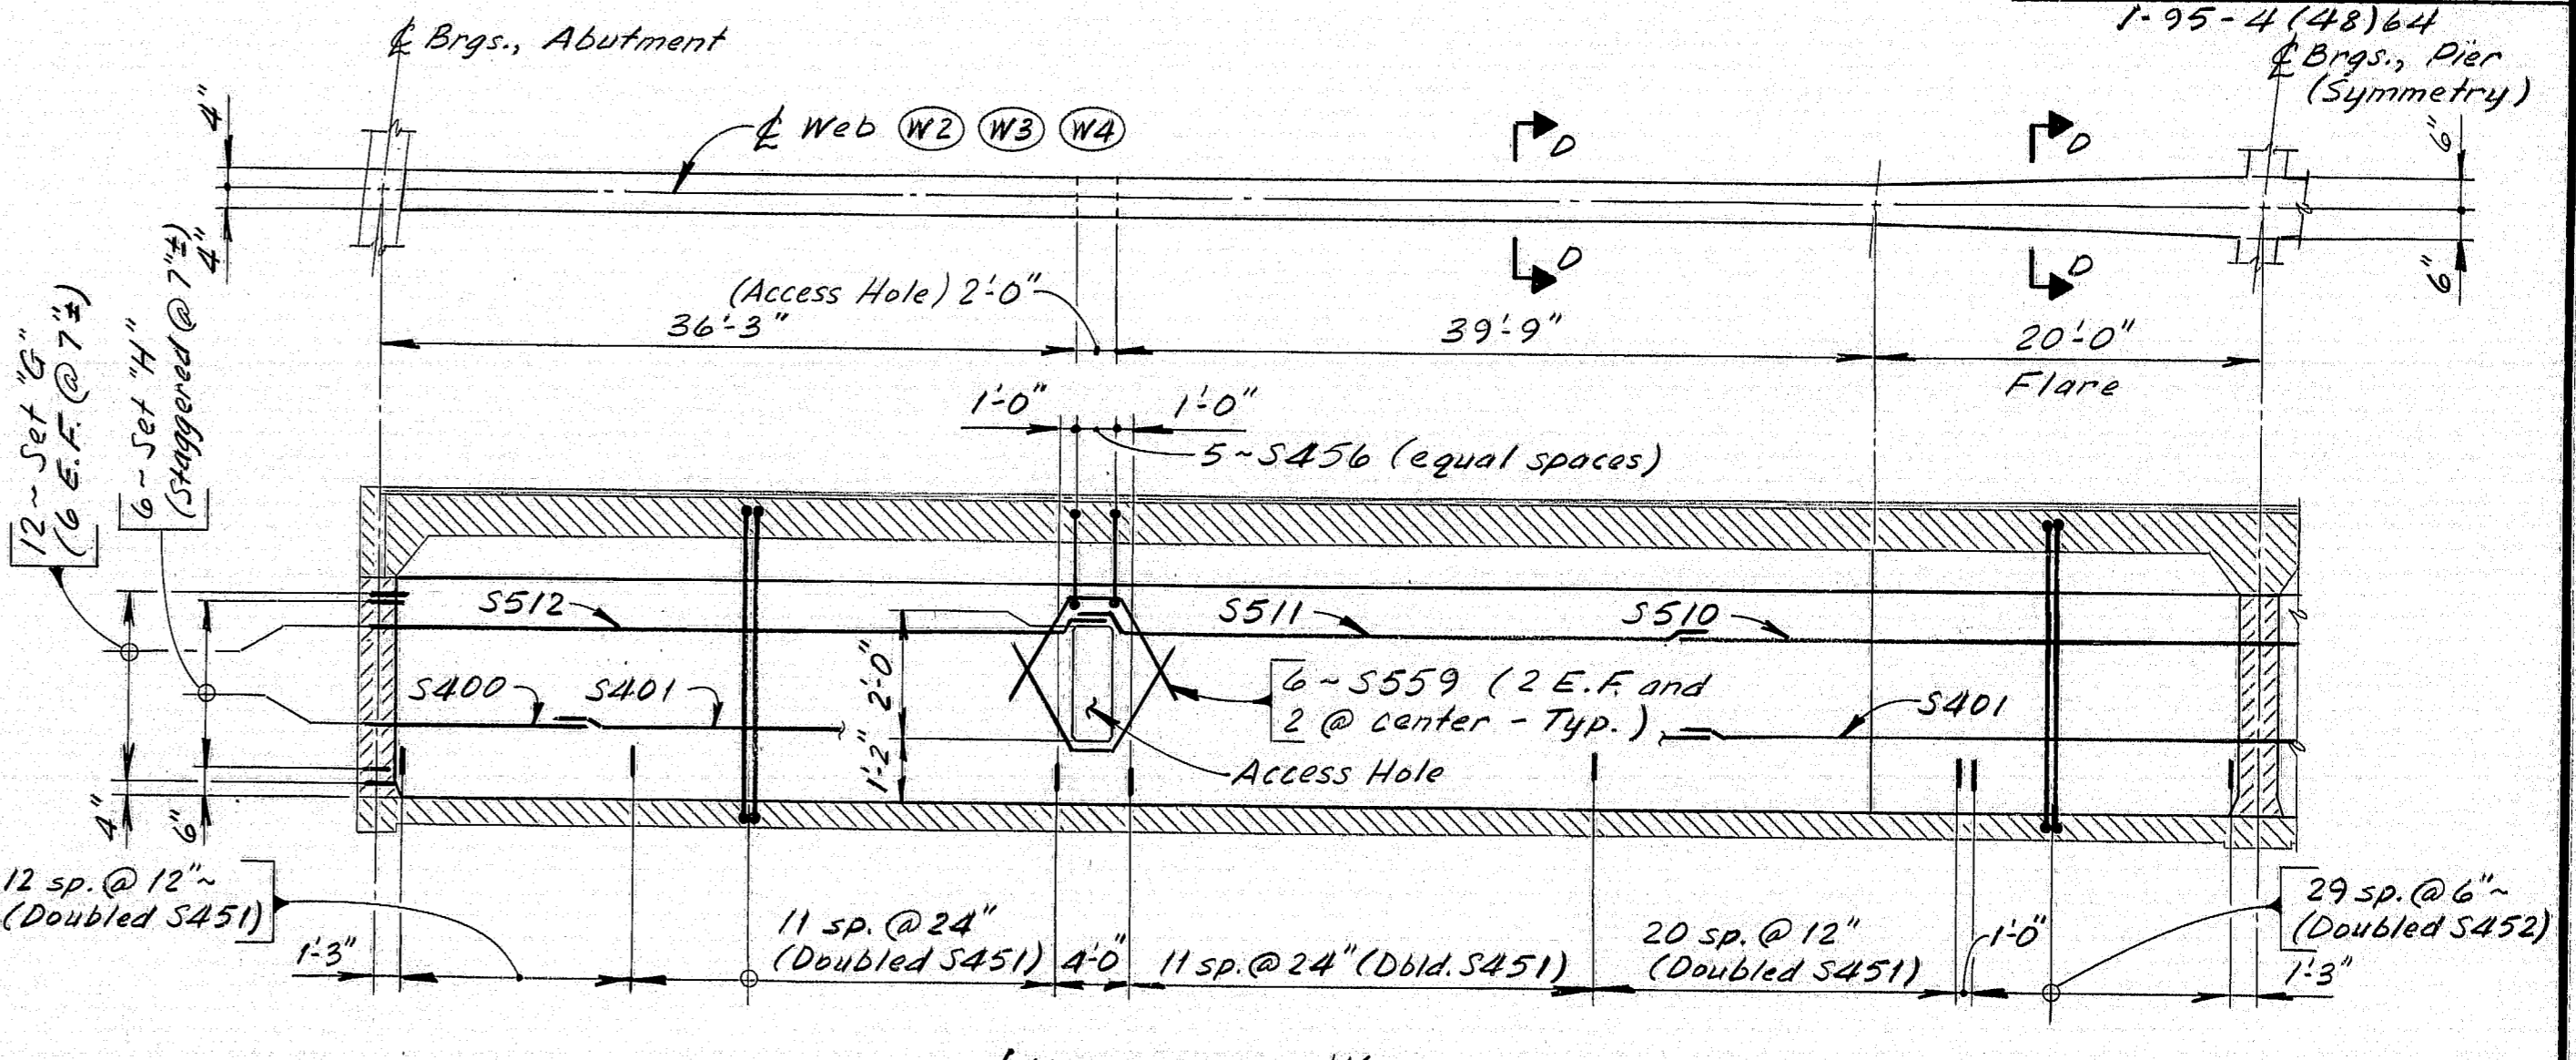 1-95-4(48)64
℄ Brgs., Abutment
℄ Brgs., Pier
(Symmetry)
℄ Web W2 W3 W4
D
D
4"
4"
6"
6"
D
D
(Access Hole) 2'-0"
36'-3"
39'-9"
20'-0"
Flare
12 ~ Set "G"
(6 E.F. @ 7"±)
6 ~ Set "H"
(Staggered @ 7"±)
1'-0"
1'-0"
5 ~ S456 (equal spaces)
S512
S511
S510
S400
S401
2'-0"
6 ~ S559 (2 E.F. and
2 @ center - Typ.)
S401
1'-2"
Access Hole
4"
6"
12 sp. @ 12" ~
(Doubled S451)
1'-3"
11 sp. @ 24"
(Doubled S451)
4'-0"
11 sp. @ 24" (Dbld. S451)
20 sp. @ 12"
(Doubled S451)
1'-0"
29 sp. @ 6" ~
(Doubled S452)
1'-3"